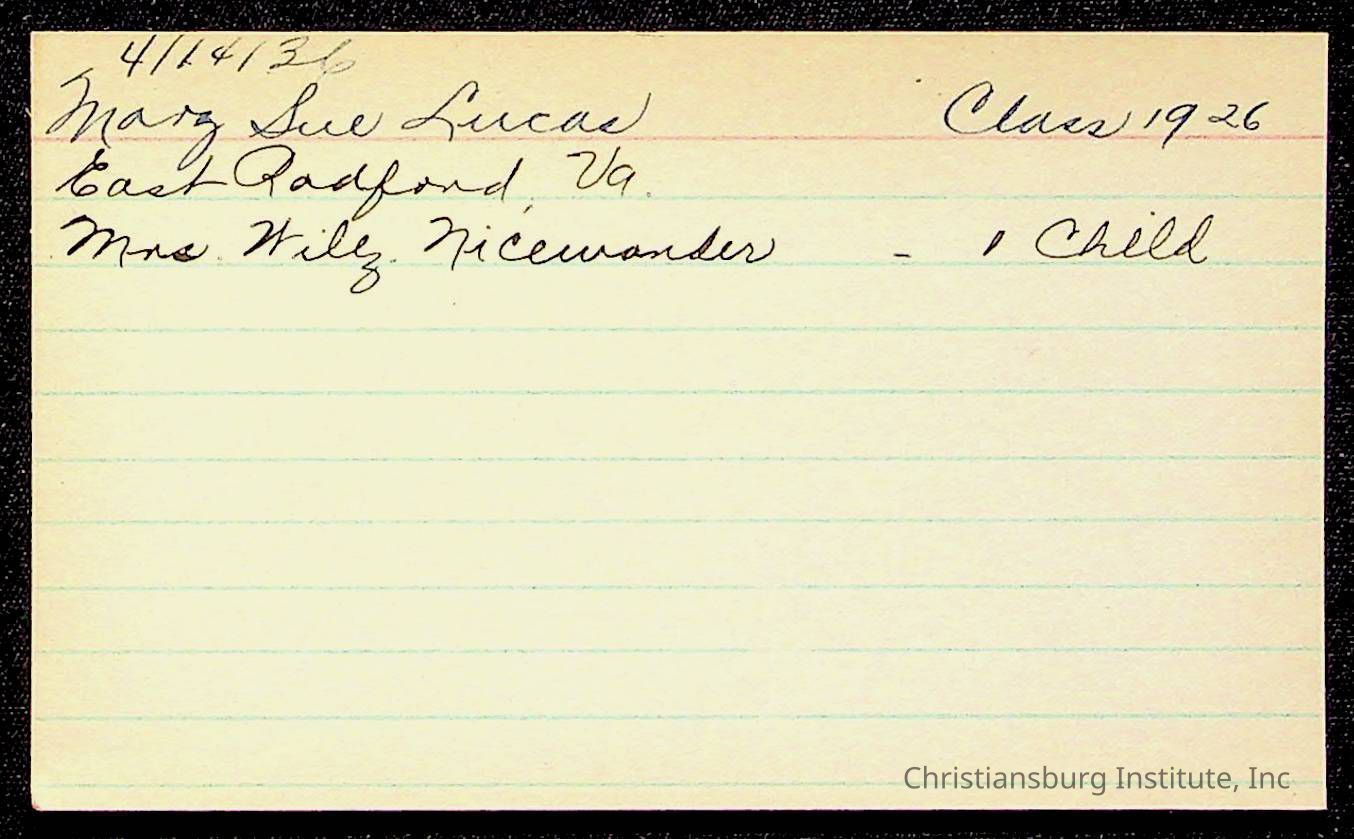 4/14/36
Mary Sue Lucas Class 1926
East Radford, Va.
Mrs. Wiley Nicewander - 1 Child
Christiansburg Institute, Inc